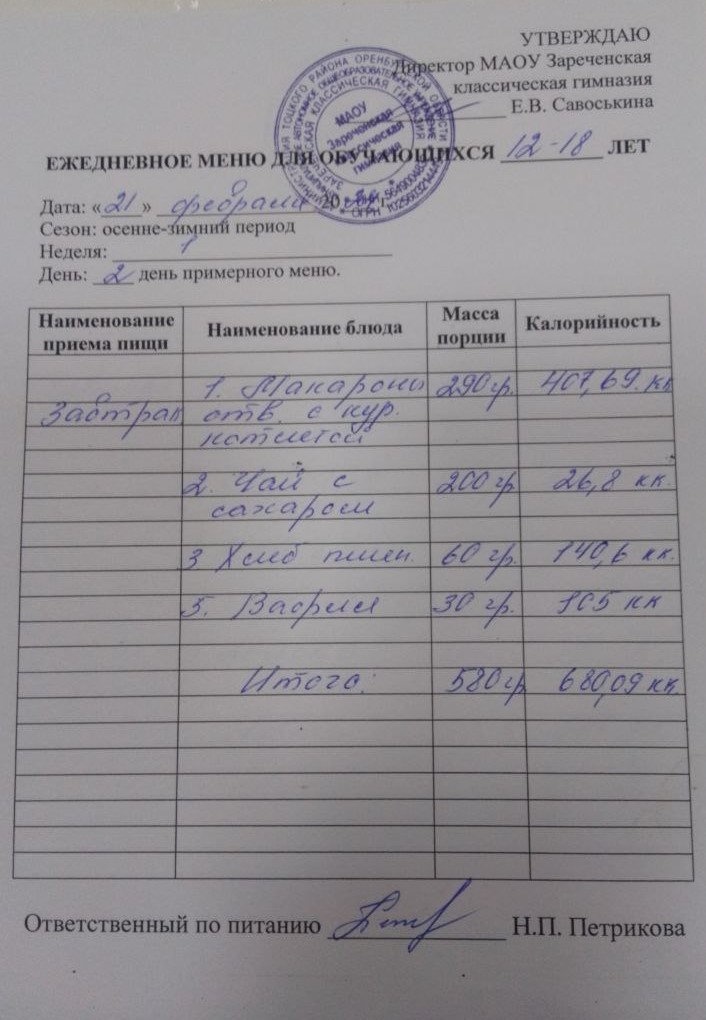 УТВЕРЖДАЮ
Директор МАОУ Зареченская
классическая гимназия
Е.В. Савоськина
МАОУ
Зареченская
классическая
гимназия
ЕЖЕДНЕВНОЕ МЕНЮ ДЛЯ ОБУЧАЮЩИХСЯ 12-18 ЛЕТ
Дата: «21» февраля 20 г.
Сезон: осенне-зимний период
Неделя: 1
День: 2 день примерного меню.
Наименование приема пищи Наименование блюда Масса порции Калорийность
1. Макароны 290 гр. 407,69. кк
Завтрак отв. с кур.
котлетой
2. Чай с 200 гр 26,8 кк.
сахаром
3 Хлеб пшен. 60 гр. 140,6 кк.
5. Вафля 30 гр. 105 кк
Итого: 580 гр 680,09 кк.
Ответственный по питанию Н.П. Петрикова